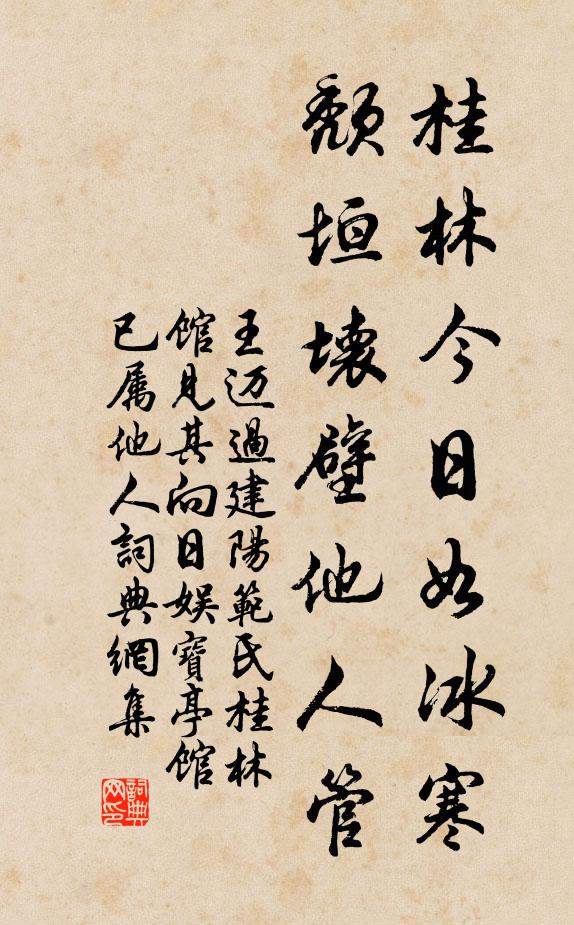 桂林今日如冰寒
頹垣壞壁他人管
王迈過建陽範氏桂林
館見其向日娱寶亭館
已属他人詞典網集
詞典
网印